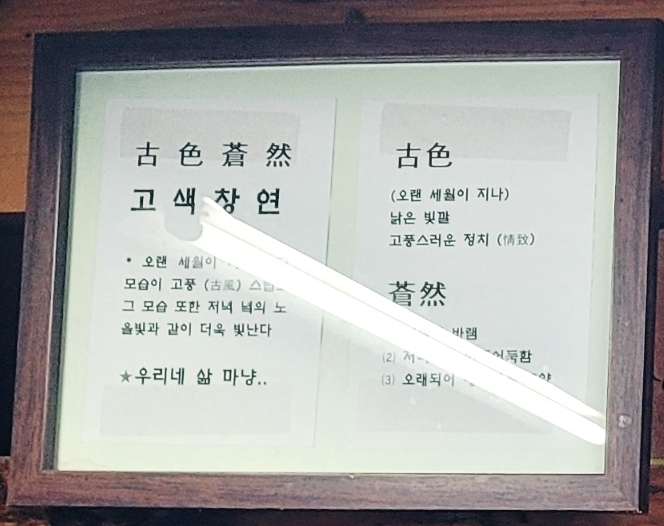 古色蒼然
고색창연
• 오랜 세월이
모습이 고풍 (古風)
그 모습 또한 저녁 녘의 노
을빛과 같이 더욱 빛난다
★우리네 삶 마냥..
古色
(오랜 세월이 지나)
낡은 빛깔
고풍스러운 정치 (情致)
蒼然
바램
(2)
(3) 오래되어